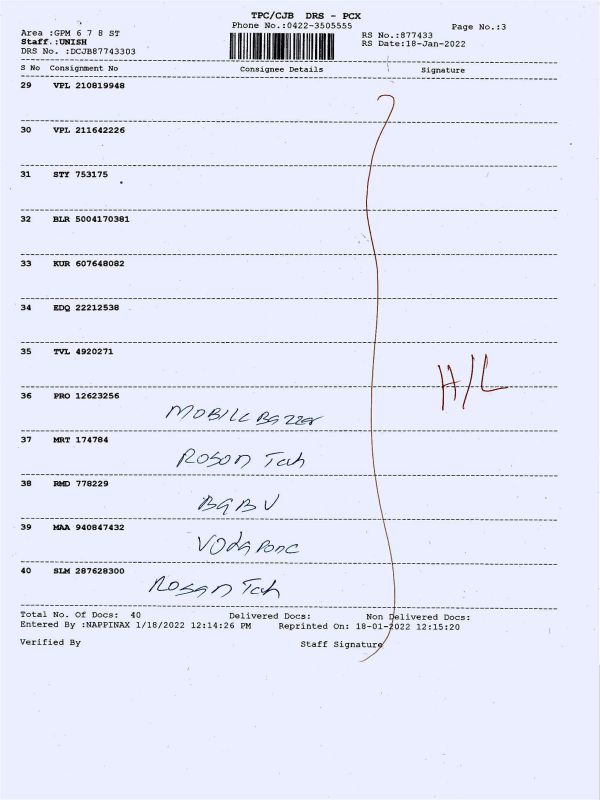 TPC/CJB DRS - PCX
Phone No.:0422-3505555
Page No.:3
Area :GPM 6 7 8 ST
RS No.:877433
Staff.:UNISH
RS Date:18-Jan-2022
DRS No. :DCJB87743303
S No Consignment No Consignee Details Signature
29 VPL 210819948
30 VPL 211642226
31 STY 753175
32 BLR 5004170381
33 KUR 607648082
34 EDQ 22212538
35 TVL 4920271
H/L
36 PRO 12623256
MOBILL Bazzer
37 MRT 174784
ROSON Tch
38 RMD 778229
BABU
39 MAA 940847432
Vodapone
40 SLM 287628300
Rosan Tch
Total No. Of Docs: 40 Delivered Docs: Non Delivered Docs:
Entered By :NAPPINAX 1/18/2022 12:14:26 PM Reprinted On: 18-01-2022 12:15:20
Verified By Staff Signature